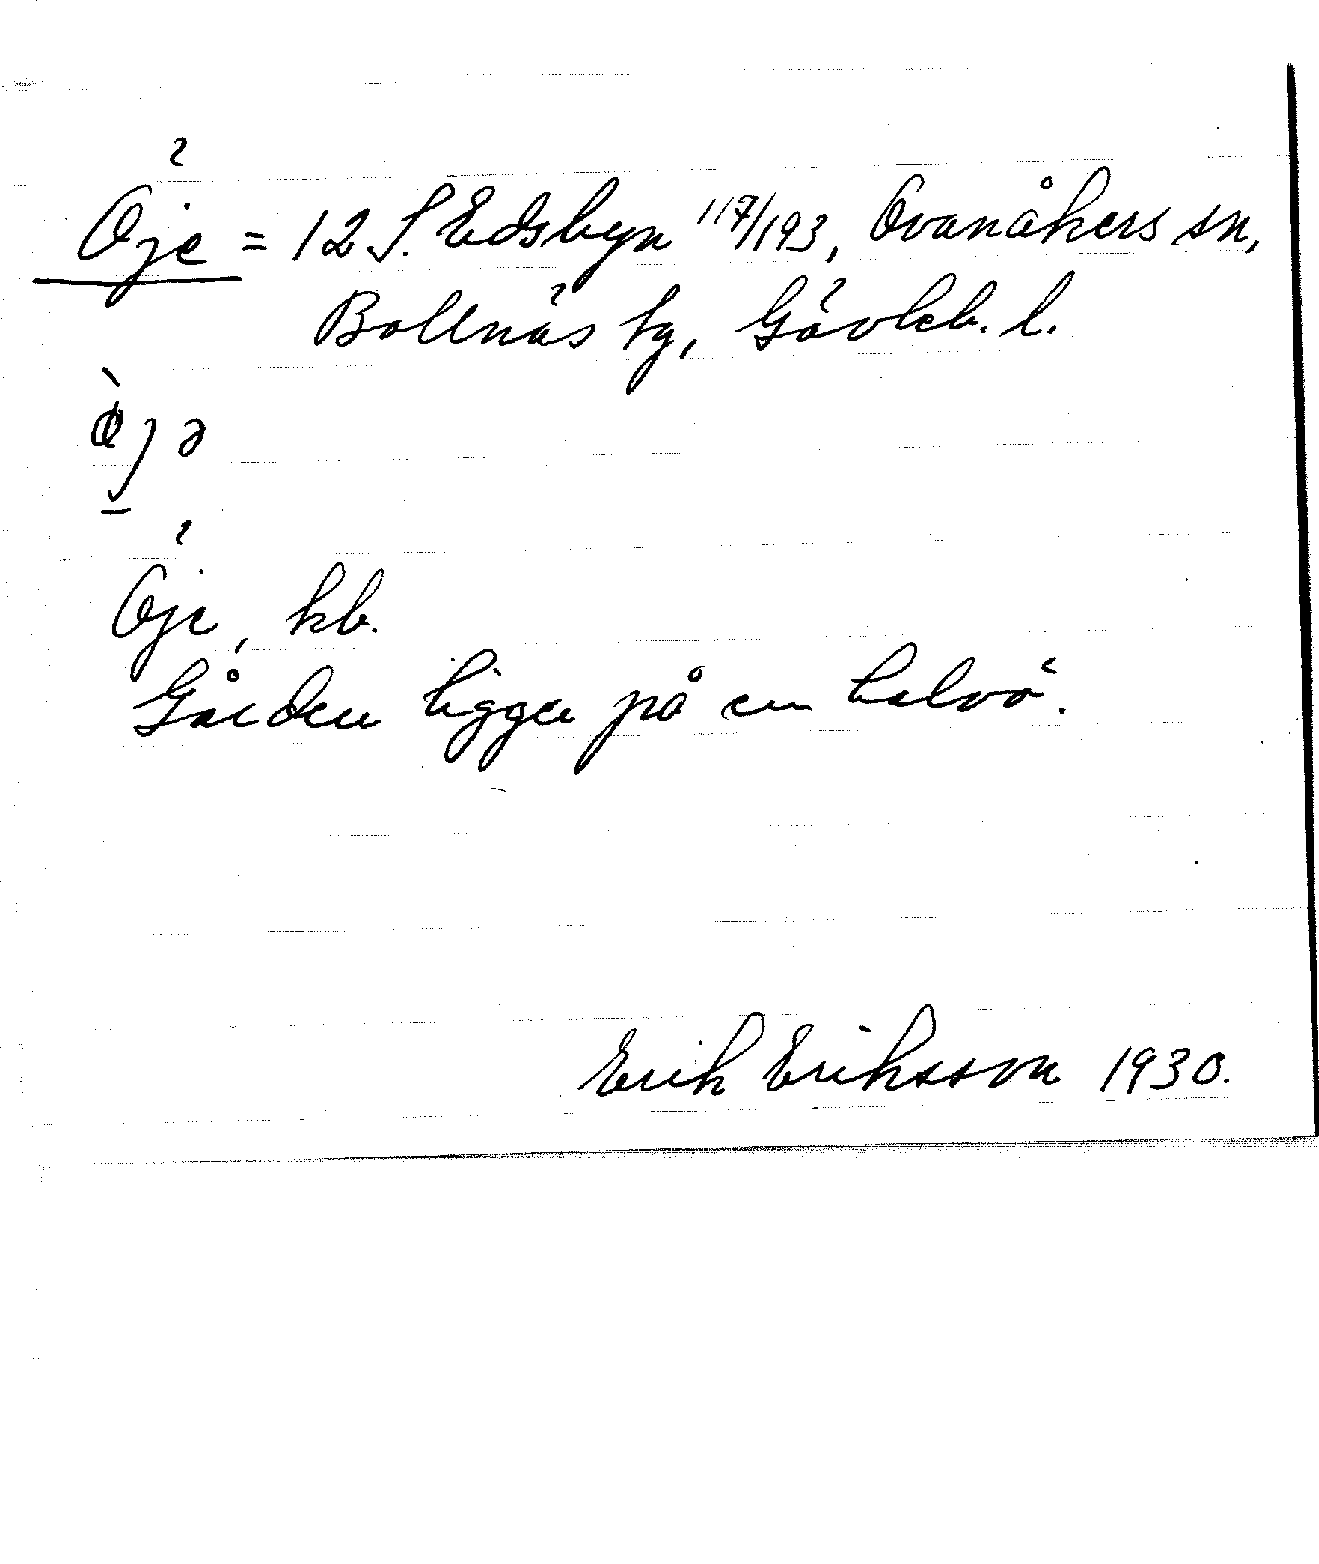 Öje = 12 S. Edsbyn 117/193, Ovanåkers sn,
Bollnäs tg, Gävleb. l.
ø̀jə
Öje, kb.
Gården ligger på en halvö.
Erik Eriksson 1930.